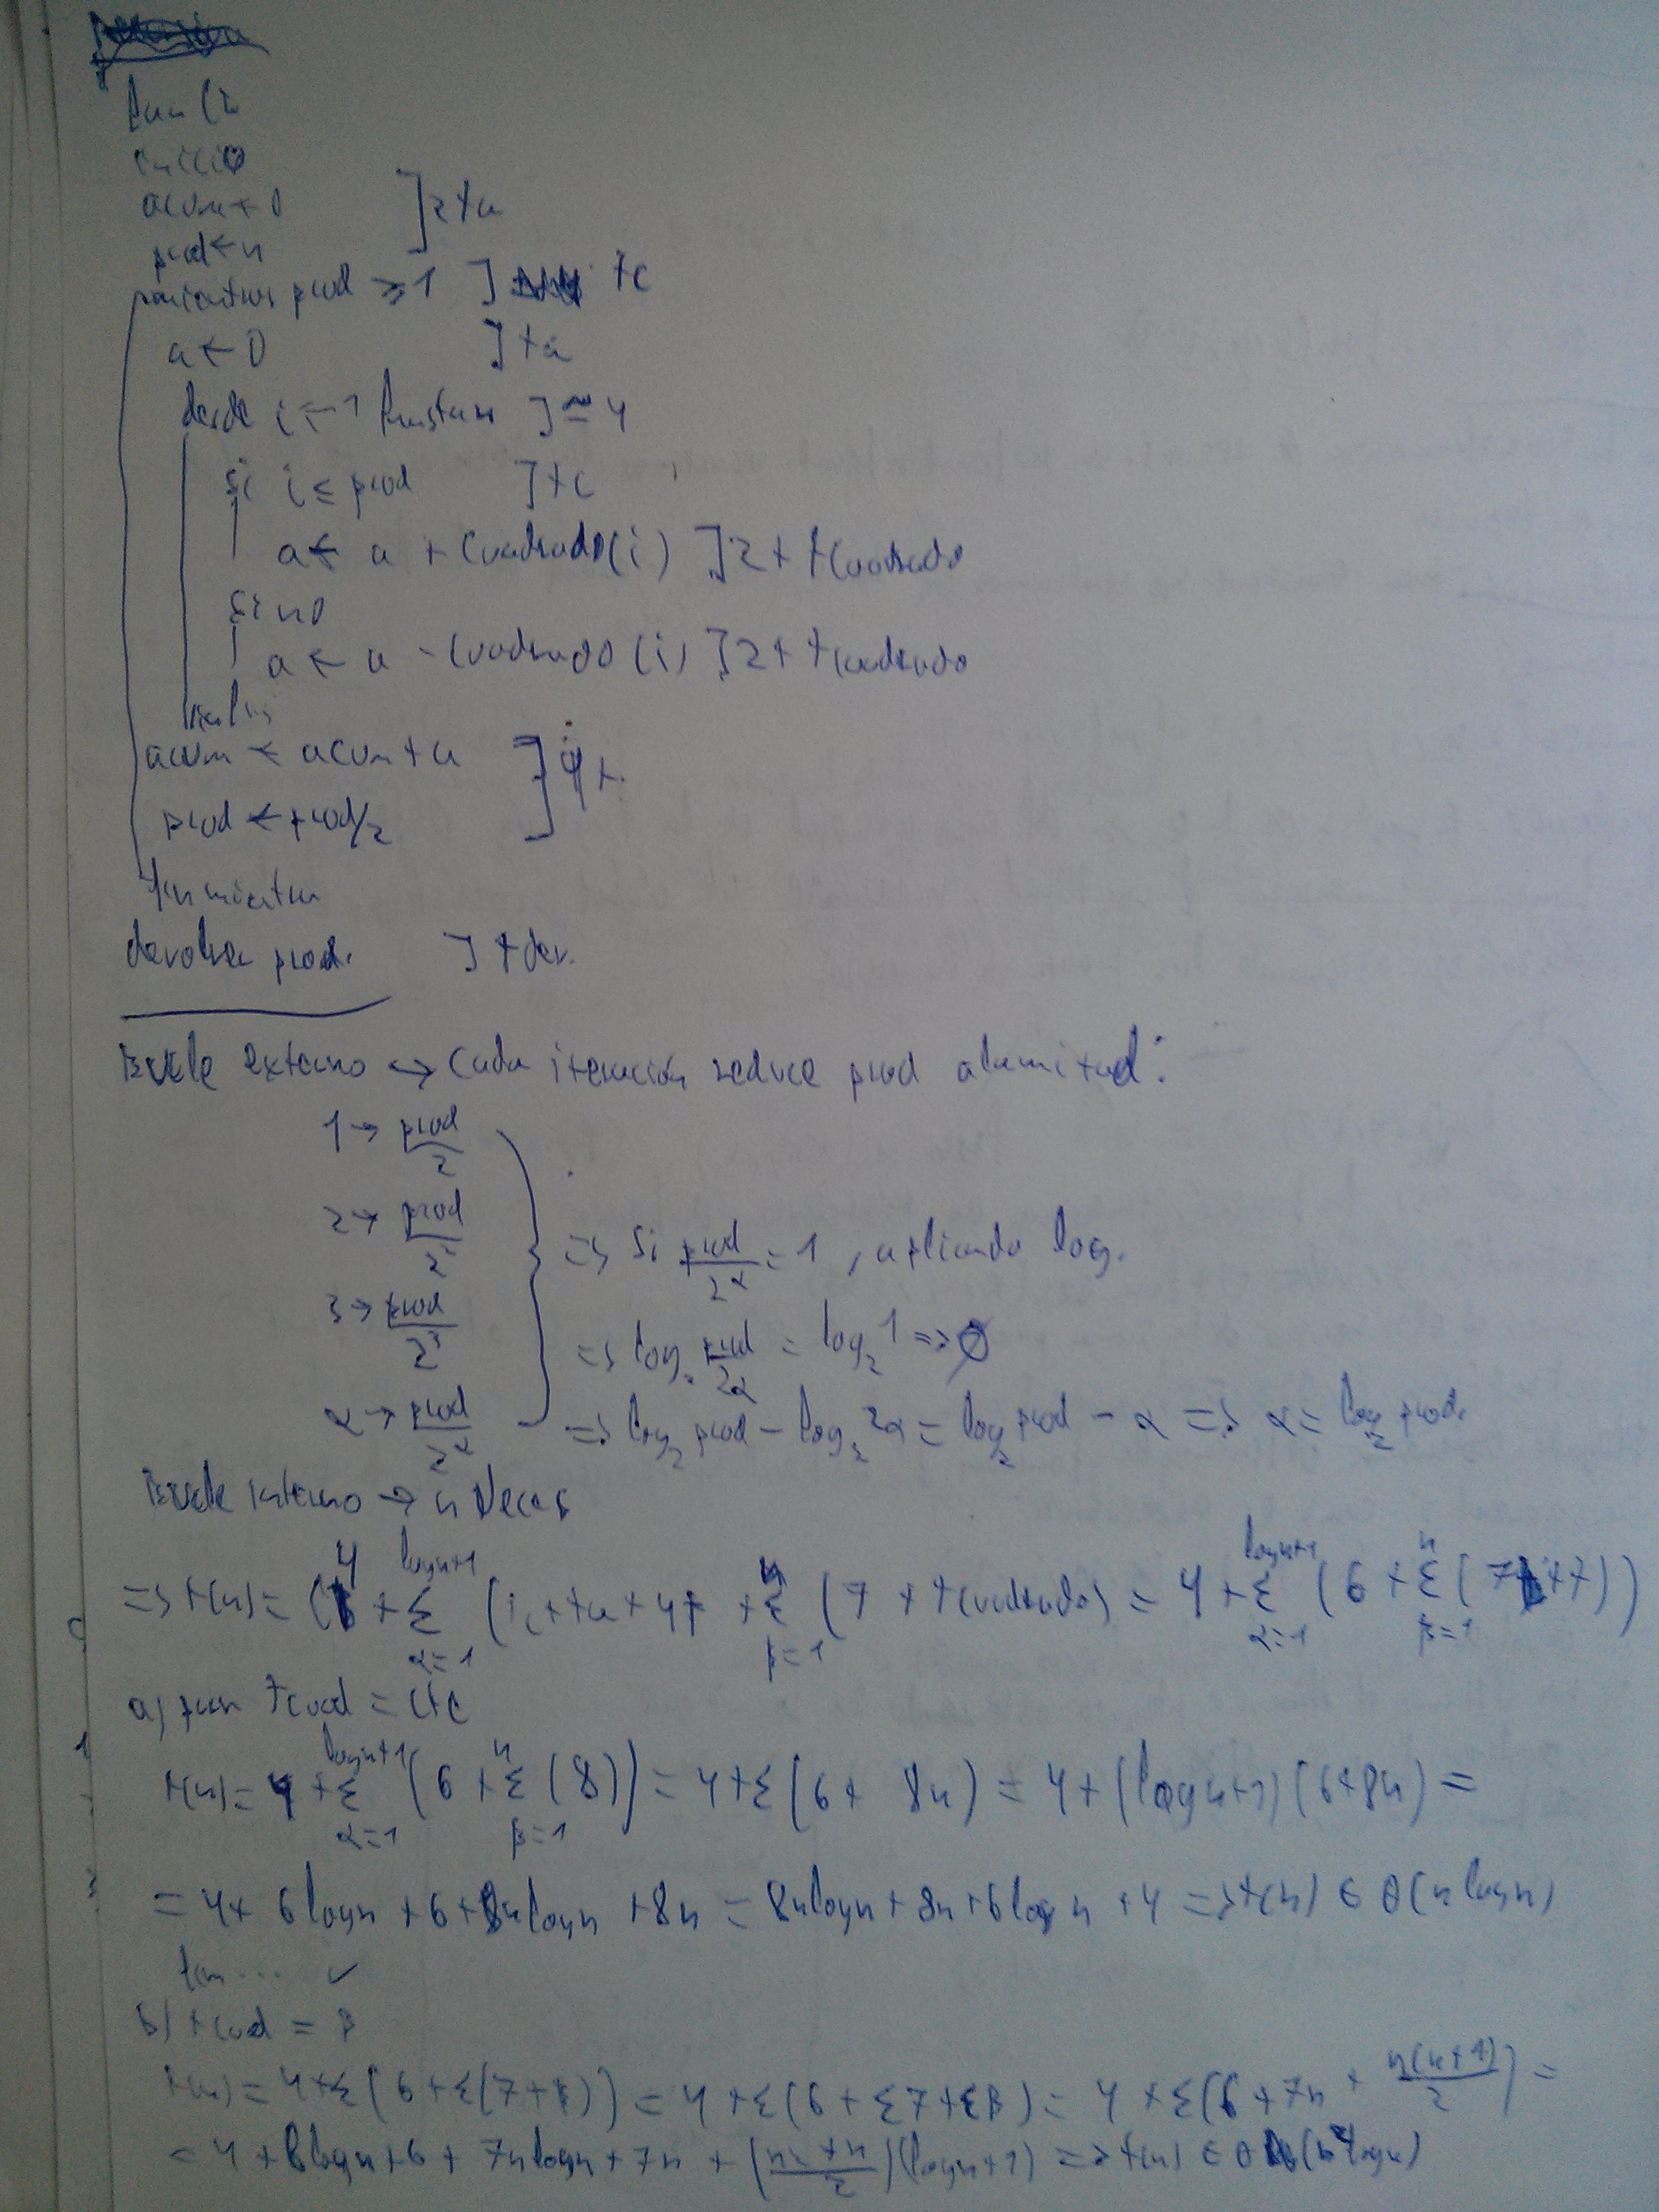 inicio
acum ← 0 ] 2ta
prod ← n
mientras prod ≥ 1 ] tc
a ← 0 ] ta
desde i ← 1 hasta n ] ≃ 4
si i ≤ prod ] tc
a ← a + Cuadrado(i) ] 2 + tcuadrado
sino
a ← a - Cuadrado(i) ] 2 + tcuadrado
acum ← acum + a ] 4t
prod ← prod/2
fin mientras
devolver prod. ] tdev.
Bucle externo → Cada iteración reduce prod a la mitad:
1 → prod/2
2 → prod/2²
3 → prod/2³
α → prod/2^α
=> Si prod/2^α = 1, aplicando log.
=> log₂ prod/2α = log₂ 1 => 0
=> log₂ prod - log₂ 2α = log₂ prod - α => α = log₂ prod.
Bucle interno → n veces
=> t(n) = (4 + Σ_{α=1}^{log n+1} (tc + ta + 4t + Σ_{β=1}^{n} (7 + tcuadrado) = 4 + Σ_{α=1}^{log n+1} (6 + Σ_{β=1}^{n} (7
a) para tcuad = cte
t(n) = 4 + Σ_{α=1}^{log n+1} (6 + Σ_{β=1}^{n} (8)) = 4 + Σ(6 + 8n) = 4 + (log n+1)(6+8n) =
= 4 + 6 log n + 6 + 8n log n + 8n = 8n log n + 8n + 6 log n + 4 => t(n) ∈ θ(n log n)
lim ... ✓
b) tcud = β
t(n) = 4 + Σ(6 + Σ(7 + β)) = 4 + Σ(6 + Σ7 + Σβ) = 4 + Σ(6 + 7n + n(n+1)/2) =
= 4 + 6 log n + 6 + 7n log n + 7n + (n² + n/2)(log n+1) => t(n) ∈ θ (n² log n)